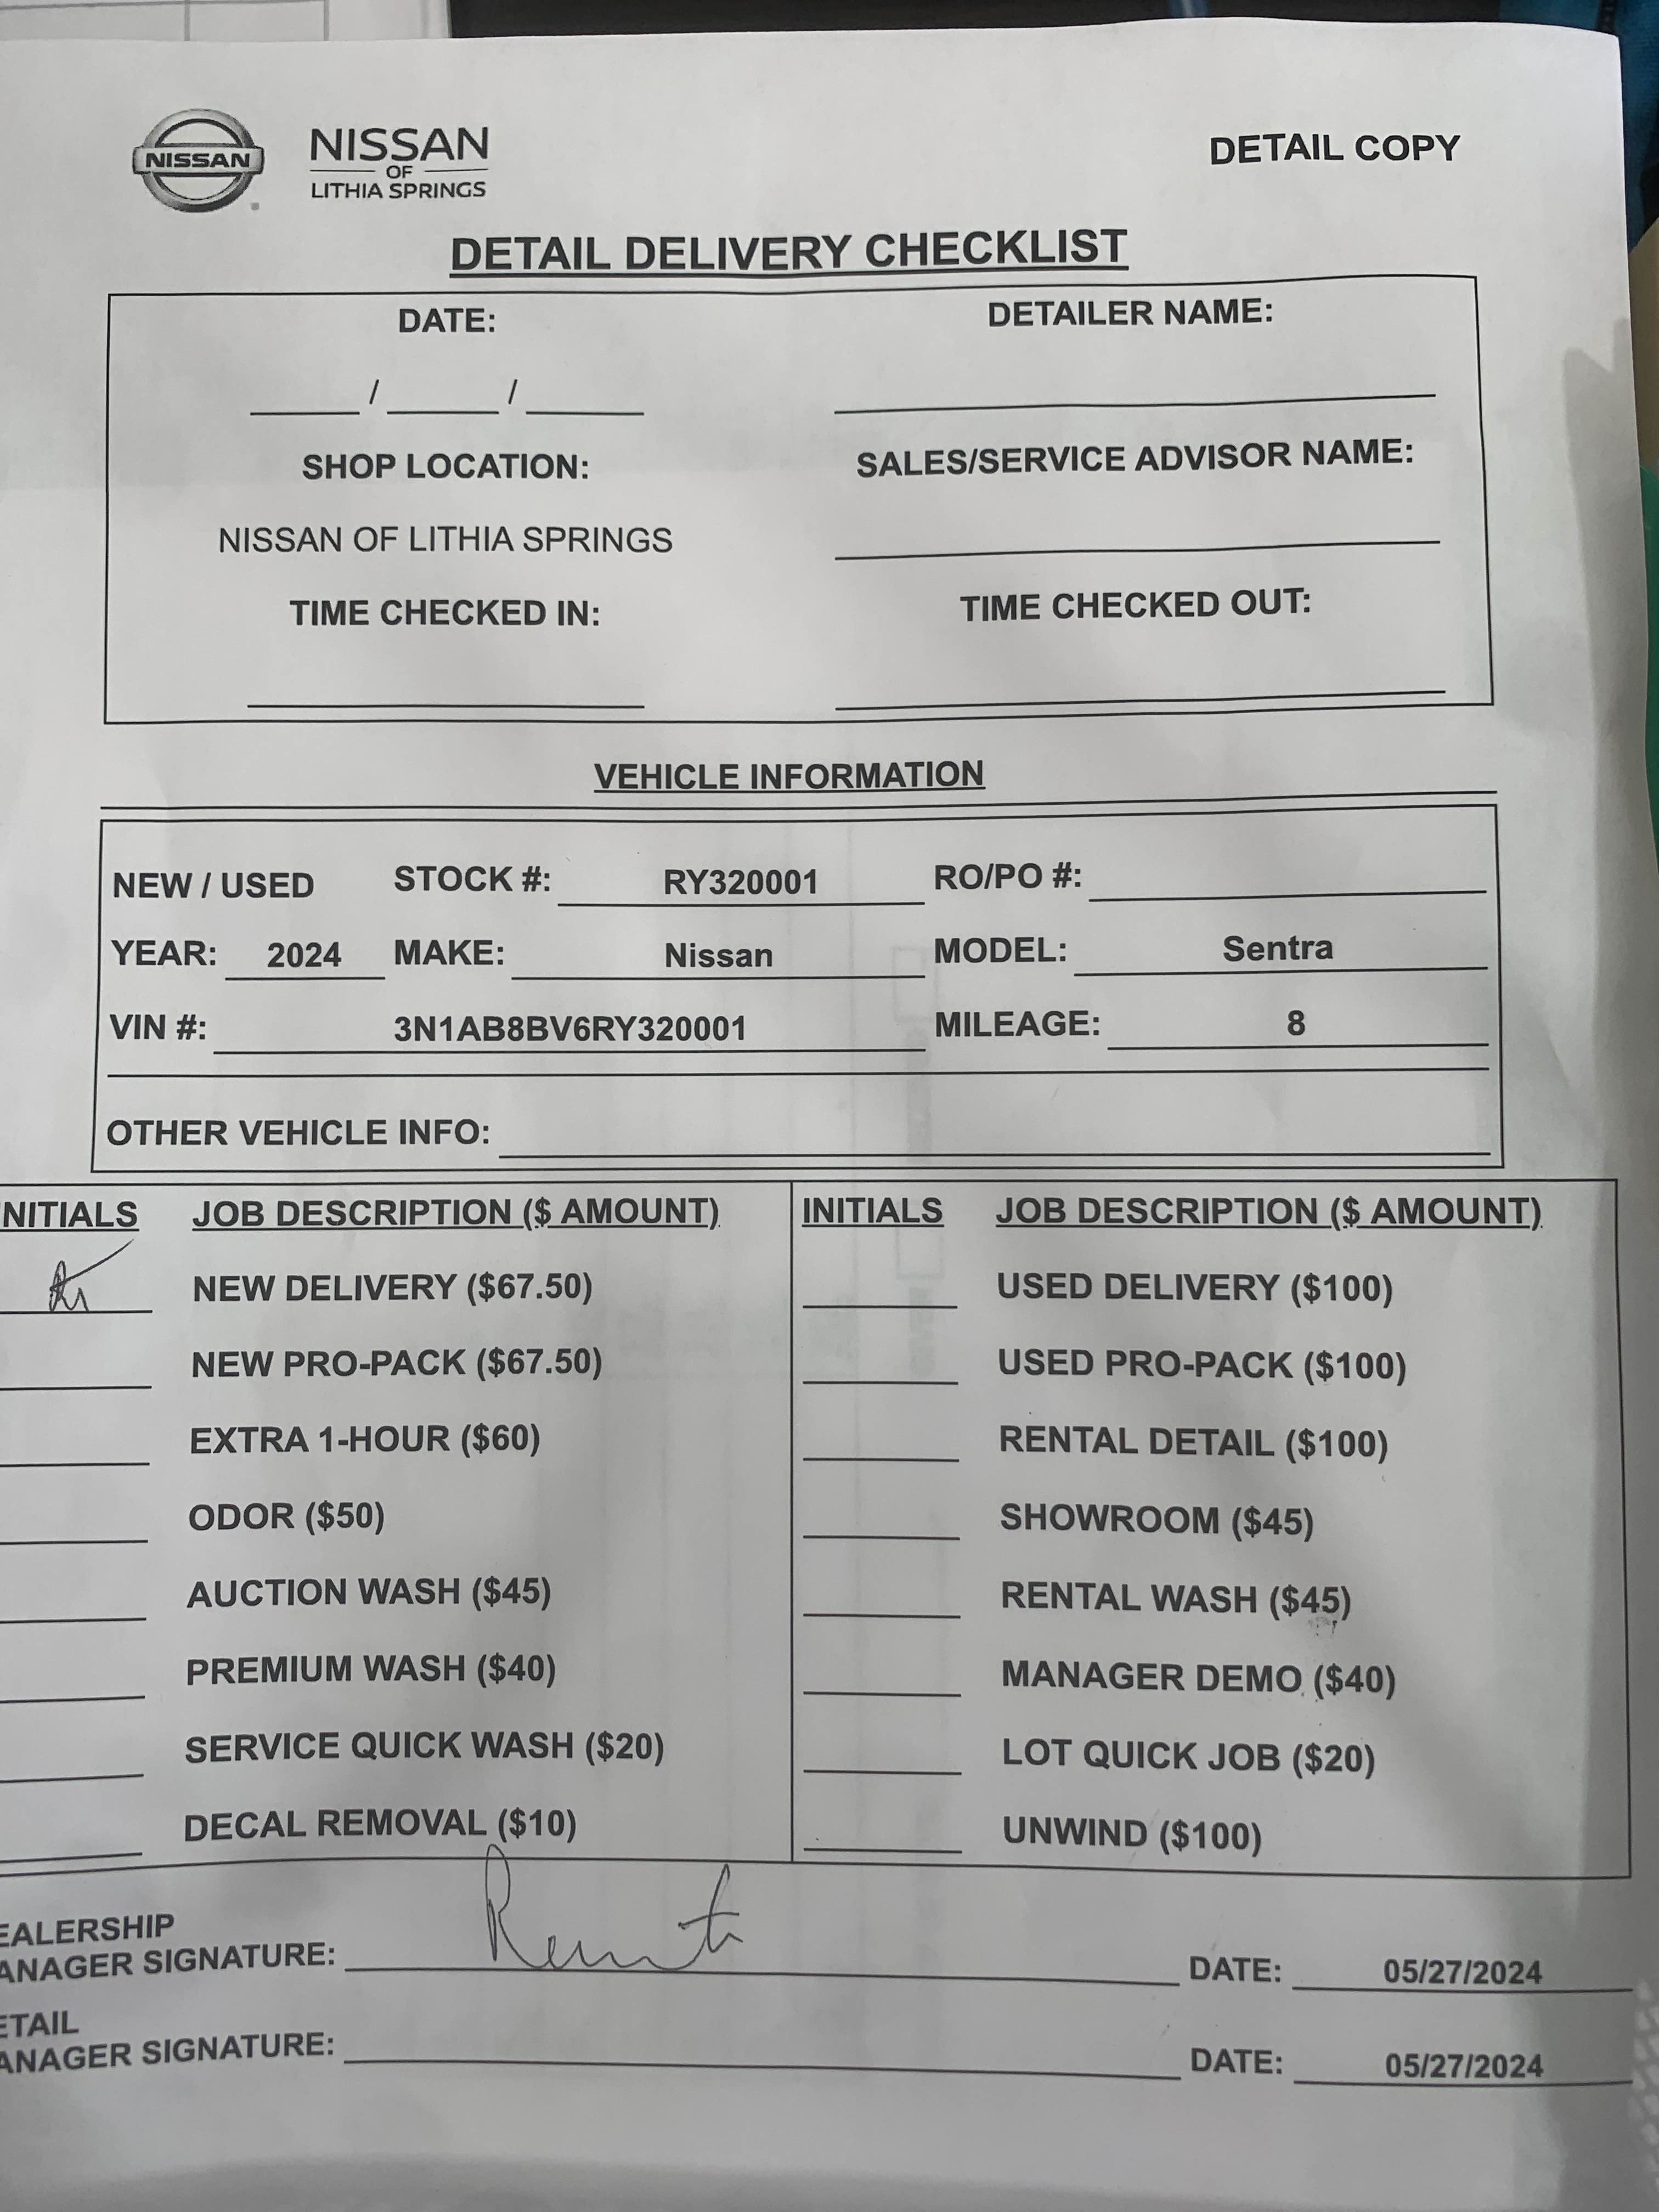 NISSAN
NISSAN
OF
LITHIA SPRINGS
DETAIL COPY
DETAIL DELIVERY CHECKLIST
DATE: DETAILER NAME:
/ /
SHOP LOCATION: SALES/SERVICE ADVISOR NAME:
NISSAN OF LITHIA SPRINGS
TIME CHECKED IN: TIME CHECKED OUT:
VEHICLE INFORMATION
NEW / USED STOCK #: RY320001 RO/PO #:
YEAR: 2024 MAKE: Nissan MODEL: Sentra
VIN #: 3N1AB8BV6RY320001 MILEAGE: 8
OTHER VEHICLE INFO:
NITIALS JOB DESCRIPTION ($ AMOUNT) INITIALS JOB DESCRIPTION ($ AMOUNT)
NEW DELIVERY ($67.50) USED DELIVERY ($100)
NEW PRO-PACK ($67.50) USED PRO-PACK ($100)
EXTRA 1-HOUR ($60) RENTAL DETAIL ($100)
ODOR ($50) SHOWROOM ($45)
AUCTION WASH ($45) RENTAL WASH ($45)
PREMIUM WASH ($40) MANAGER DEMO ($40)
SERVICE QUICK WASH ($20) LOT QUICK JOB ($20)
DECAL REMOVAL ($10) UNWIND ($100)
EALERSHIP
ANAGER SIGNATURE: DATE: 05/27/2024
ETAIL
ANAGER SIGNATURE: DATE: 05/27/2024